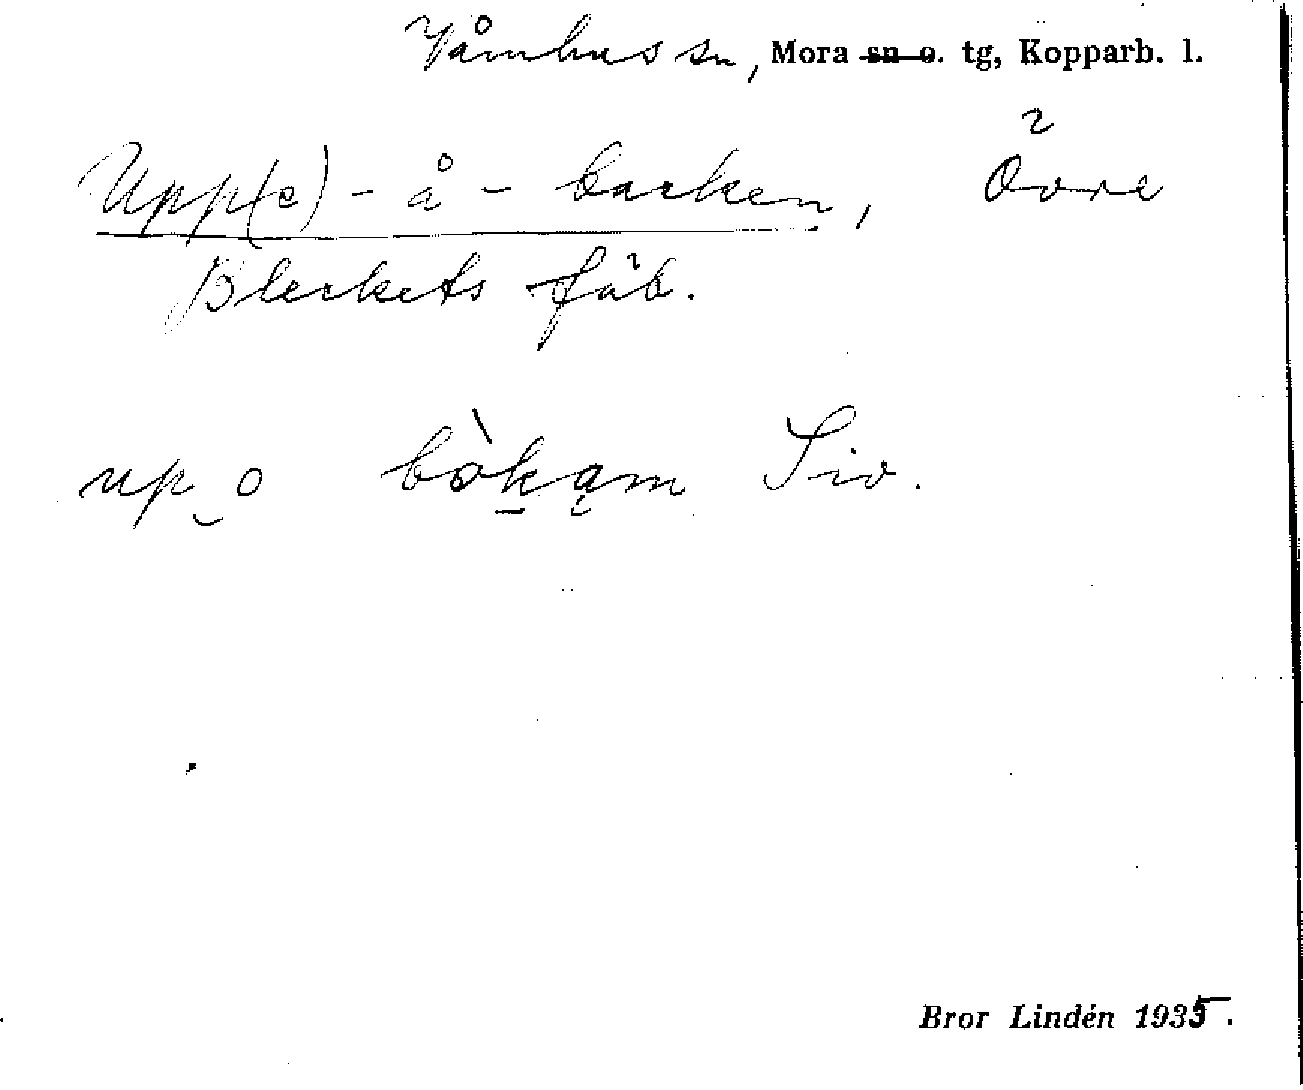 Våmhus sn, Mora ~~sn o.~~ tg, Kopparb. l.
Upp(e)-å-backen, Övre
Bleckets fäb.
up o bòkąm Siv.
Bror Lindén 1935.